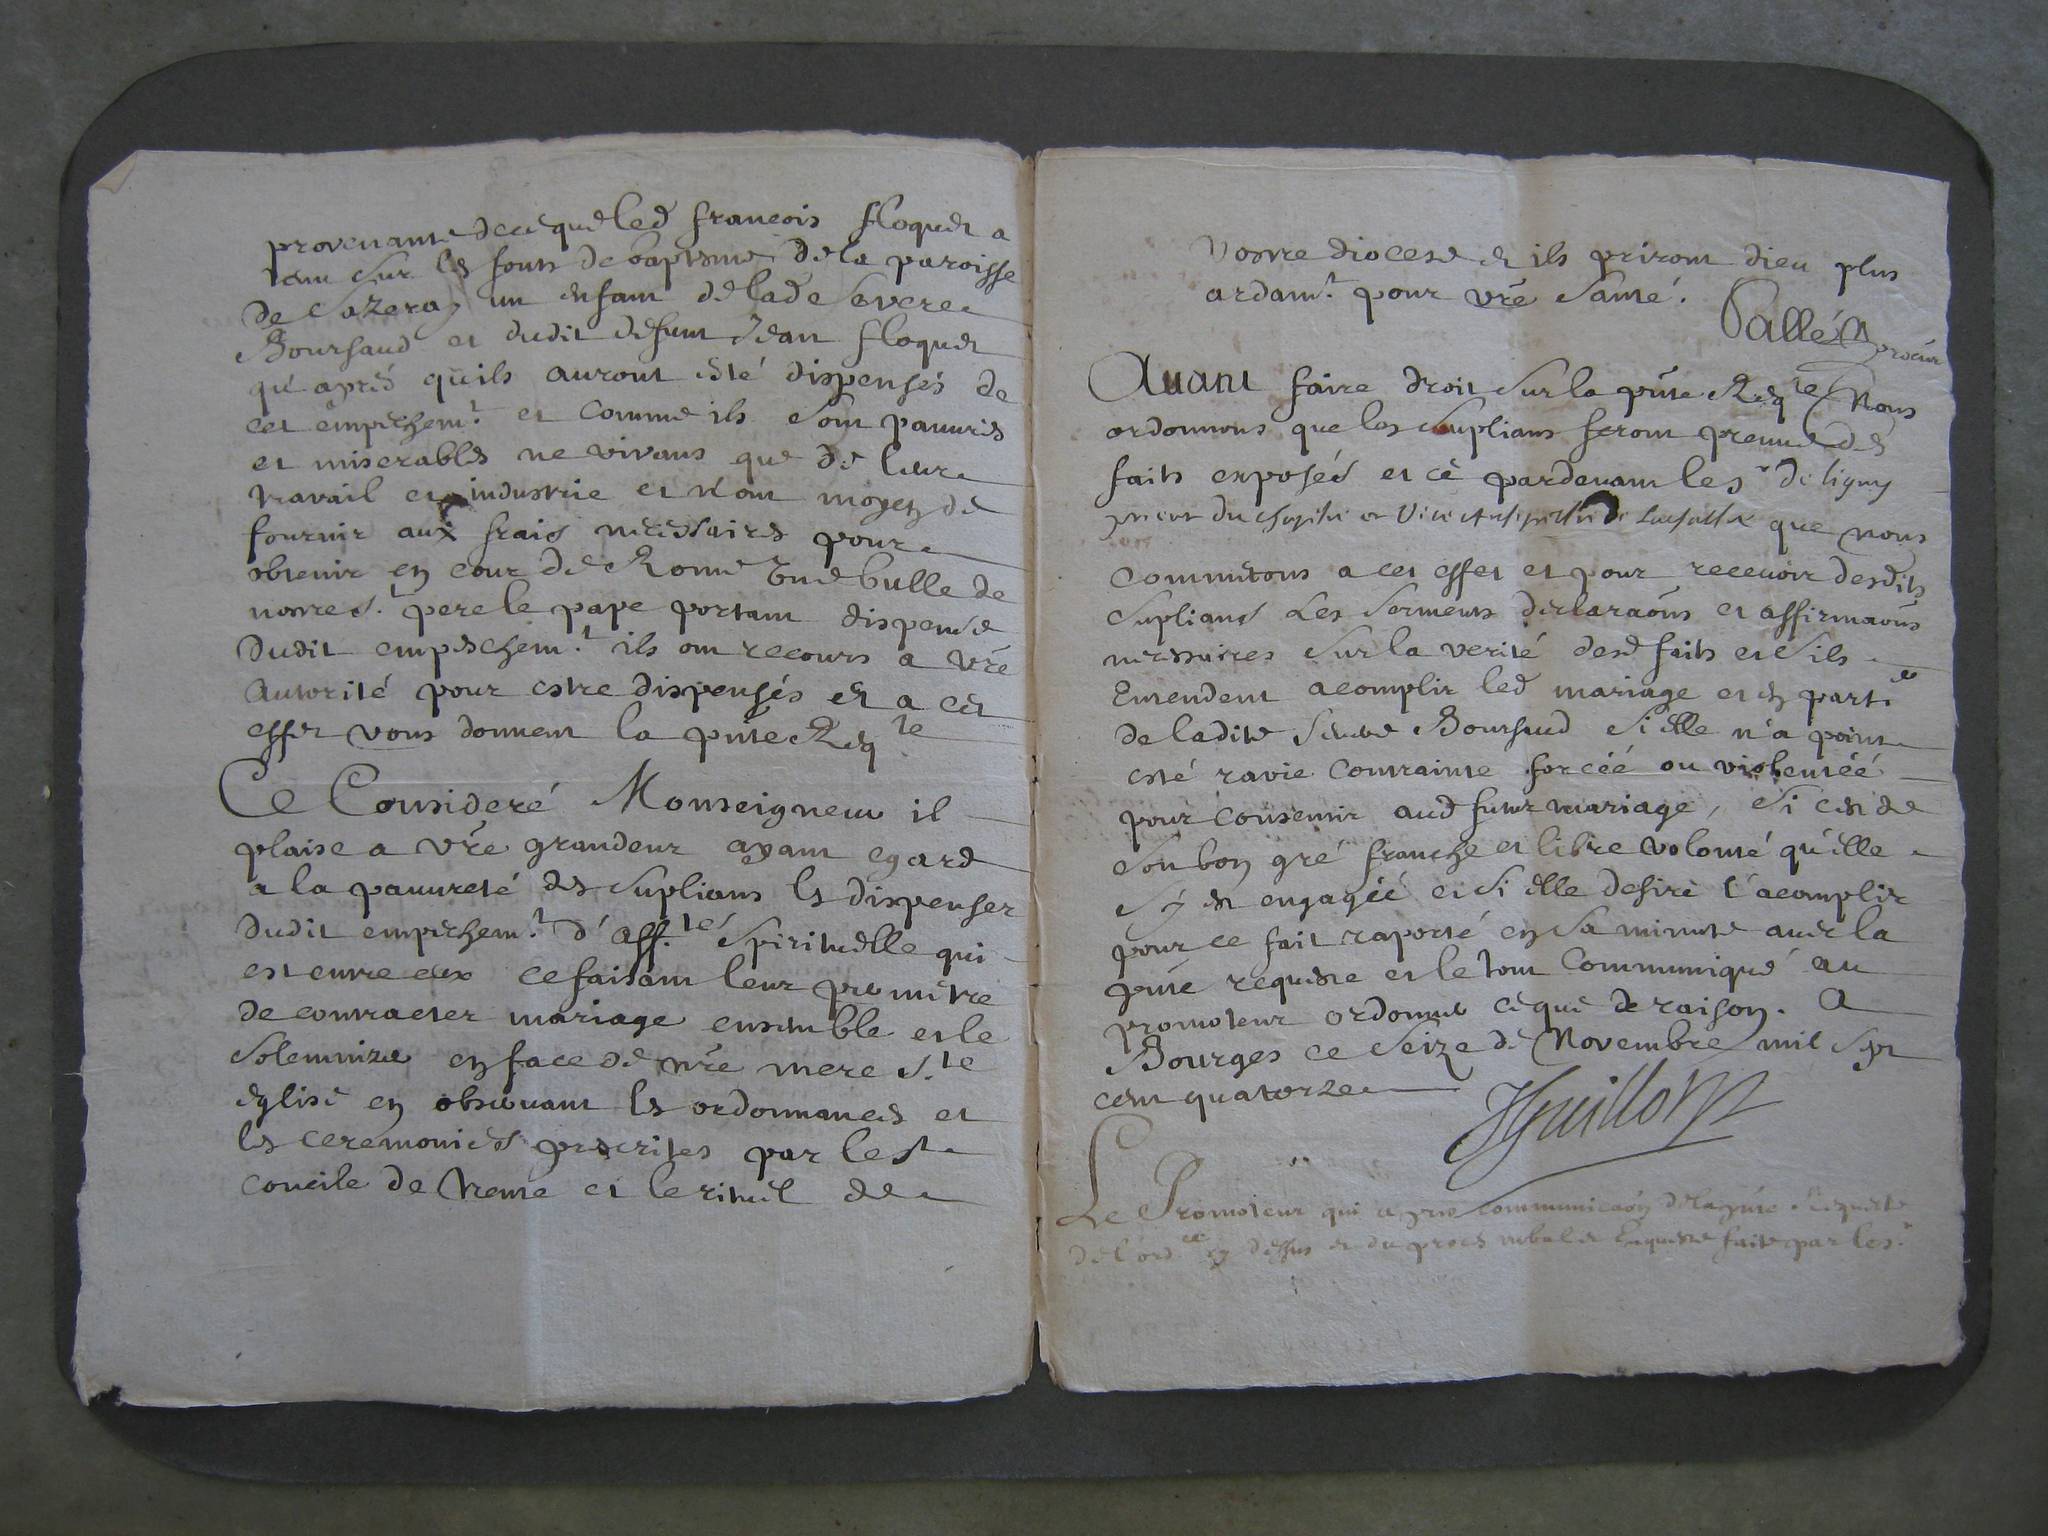 provenante de ce que led francois floquet a
tenu sur les fonts de baptesme de la paroisse
de Sazeray un enfant de lade Severe
Boursaud et dudit defunt Jean floquet
qu'aprés qu'ils auront esté dispensés de
cet empechemt et comme ils sont pauures
et miserables ne vivans que de leur
travail et industrie et n'ont moyen de
fournir aux frais necessaires pour
obtenir en cour de Rome une bulle de
nostre st pere le pape portant dispense
dudit empeschemt ils ont recours a vre
autorité pour estre dispensés et a cet
effet vous donnent la pnte Reqte
Ce Consideré Monseigneur il
plaise a vre grandeur ayant egard
a la pauureté des suplians les dispenser
dudit empechemt d'affté spirituelle qui
est entre eux ce faisant leur promettre
de contracter mariage ensemble et le
solemnizer en face de nre mere ste
eglise en obseruant les ordonnances et
les ceremonies prescrites par le st
concile de trente et le rituel de
vostre diocese et ils priront dieu plus
ardamt pour vre santé.
Pallé procur
Auant faire droit sur la pnte Reqte Nous
ordonnons que les suplians feront preuue des
faits exposés et ce pardeuant le sr de ligny
que nous
commetons a cet effet et pour receuoir desdits
suplians les serments declaraons et affirmaons
necessaires sur la verité desd faits et s'ils
entendent acomplir led mariage et en parter
de ladite Boursaud si elle n'a point
esté ravie contrainte forcéé ou violentéé
pour consentir aud futur mariage, si c'est de
son bon gré franche et libre volonté qu'elle
s'y est engagéé et si elle desire l'acomplir
pour ce fait raporté en sa minute auec la
pnte requeste et le tout communiqué au
promoteur ordonné ce que de raison. A
Bourges ce seize de Novembre mil sept
cent quatorze
Le Promoteur qui a pris communicaon de la pnte requeste
de l'ordce cy dessus et du proces verbal et Enqueste faite par le sr